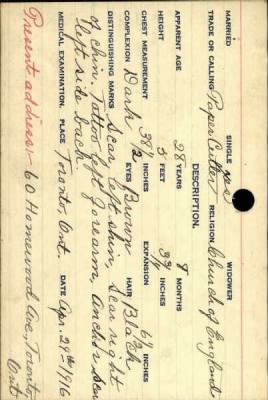 MARRIED SINGLE yes WIDOWER
TRADE OR CALLING Paper Cutter RELIGION Church of England
DESCRIPTION.
APPARENT AGE 28 YEARS 8 MONTHS
HEIGHT 5 FEET INCHES
CHEST MEASUREMENT 38½ INCHES EXPANSION INCHES
COMPLEXION Dark EYES Brown HAIR Black
DISTINGUISHING MARKS Scar left shin, Scar right
of chin. Tattoo left forearm, Anchor
left side back
MEDICAL EXAMINATION. PLACE Toronto, Ont. DATE Apr. 29th 1916
Present address:- 60 Homewood Ave, Toronto
Ont